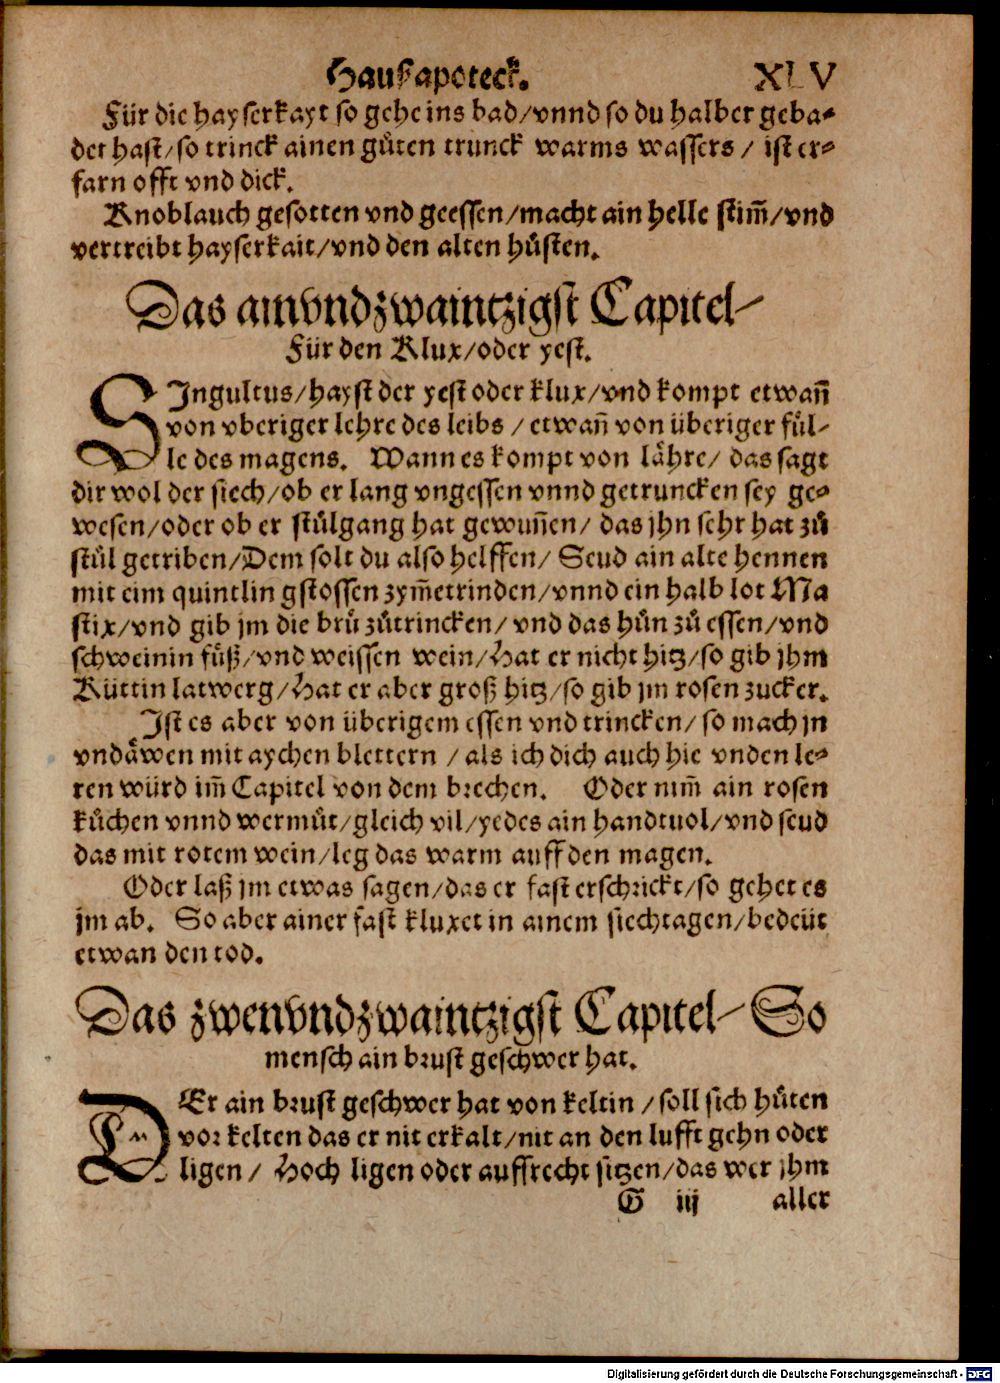 Haußapoteck. XLV
Für die hayserkayt so gehe ins bad/vnnd so du halber geba-
det hast/so trinck ainen gůten trunck warms wassers / ist er-
farn offt vnd dick.
Knoblauch gesotten vnd geessen/macht ain helle stim̃/vnd
vertreibt hayserkait/vnd den alten hůsten.
Das ainvndzwaintzigst Capitel/
Für den Klux/oder yest.
SIngultus/hayst der yest oder klux/vnd kompt etwañ
von vberiger lehre des leibs / etwañ von überiger fül-
le des magens. Wann es kompt von lähre/ das sagt
dir wol der siech/ob er lang vngessen vnnd getruncken sey ge-
wesen/oder ob er stůlgang hat gewuñen/ das jhn sehr hat zů
stůl getriben/Dem solt du also helffen/ Seud ain alte hennen
mit eim quintlin gstossen zym̃etrinden/vnnd ein halb lot Ma
stix/vnd gib jm die brü zůtrincken/ vnd das hůn zů essen/vnd
schweinin füß/vnd weissen wein/Hat er nicht hitz/so gib jhm
Küttin latwerg/Hat er aber groß hitz/so gib jm rosen zucker.
Ist es aber von überigem essen vnd trincken/ so mach jn
vndäwen mit aychen blettern / als ich dich auch hie vnden le-
ren würd im̃ Capitel von dem brechen. Oder nim̃ ain rosen
kůchen vnnd wermůt/gleich vil/yedes ain handtuol/vnd seud
das mit rotem wein/leg das warm auff den magen.
Oder laß jm etwas sagen/das er fast erschrickt/so gehet es
jm ab. So aber ainer fast kluxet in ainem siechtagen/bedeüt
etwan den tod.
Das zwenvndzwaintzigst Capitel/ So
mensch ain brust geschwer hat.
DEr ain brust geschwer hat von keltin / soll sich hüten
vor kelten das er nit erkalt/nit an den lufft gehn oder
ligen / Hoch ligen oder auffrecht sitzen/das wer jhm
G iij aller
Digitalisierung gefördert durch die Deutsche Forschungsgemeinschaft - DFG